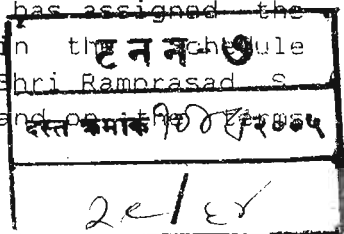 has assigned the
in the schedule
टनन-७
Shri Ramprasad S
and on the terms
दस्त क्रमांक /२००५
२९/६४